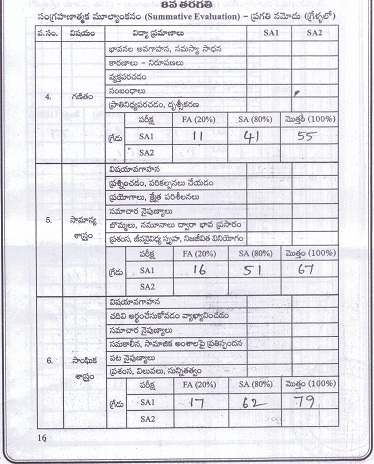 8వ తరగతి
సంగ్రహణాత్మక మూల్యాంకనం (Summative Evaluation) – ప్రగతి నమోదు (గ్రేళ్ళలో)
వ.సం. విషయం విద్యా ప్రమాణాలు SA1 SA2
భావనల అవగాహన, సమస్యా సాధన
కారణాలు – నిరూపణలు
వ్యక్తపరచడం
4. గణితం సంబంధాలు
ప్రాతినిధ్యపరచడం, దృశ్యీకరణ
గ్రేడు పరీక్ష FA (20%) SA (80%) మొత్తం (100%)
SA1 11 41 55
SA2
విషయావగాహన
ప్రశ్నించడం, పరికల్పనలు చేయడం
ప్రయోగాలు, క్షేత్ర పరిశీలనలు
సమాచార నైపుణ్యాలు
5. సామాన్య శాస్త్రం బొమ్మలు, నమూనాల ద్వారా భావ ప్రసారం
ప్రశంస, జీవవైవిధ్య స్పృహ, నిజజీవిత వినియోగం
గ్రేడు పరీక్ష FA (20%) SA (80%) మొత్తం (100%)
SA1 16 51 67
SA2
విషయావగాహన
చదివి అర్థంచేసుకోవడం వ్యాఖ్యానించడం
సమాచార నైపుణ్యాలు
సమకాలీన, సామాజిక అంశాలపై ప్రతిస్పందన
6. సాంఘిక శాస్త్రం పట నైపుణ్యాలు
ప్రశంస, విలువలు, సున్నితత్వం
గ్రేడు పరీక్ష FA (20%) SA (80%) మొత్తం (100%)
SA1 17 62 79
SA2
16